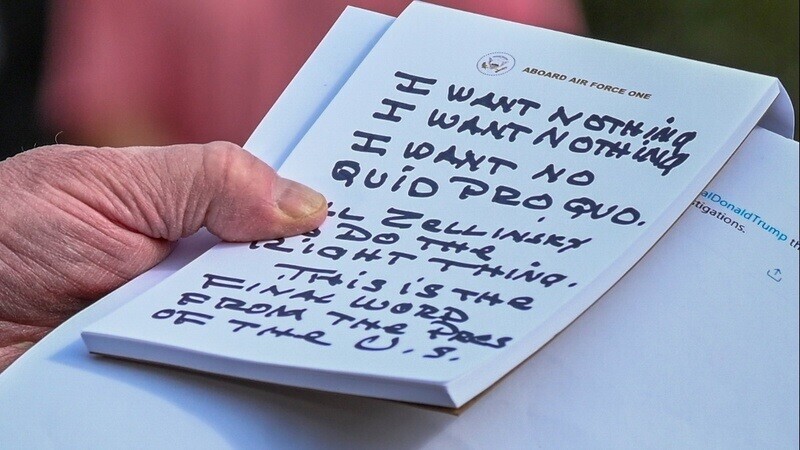 ABOARD AIR FORCE ONE
I WANT NOTHING
I WANT NOTHING
I WANT NO
QUID PRO QUO.
LL ZELLINSKY
O DO THE
RIGHT THING.
THIS IS THE
FINAL WORD
FROM THE PRES
OF THE U.S.
alDonaldTrump th
tigations.